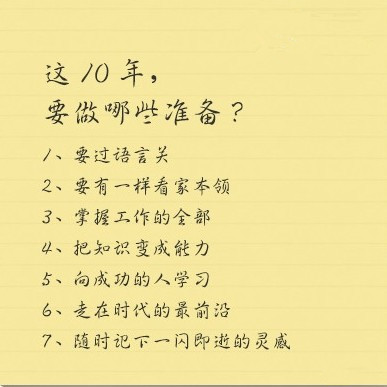 这 10 年，
要做哪些准备？
1、要过语言关
2、要有一样看家本领
3、掌握工作的全部
4、把知识变成能力
5、向成功的人学习
6、走在时代的最前沿
7、随时记下一闪即逝的灵感